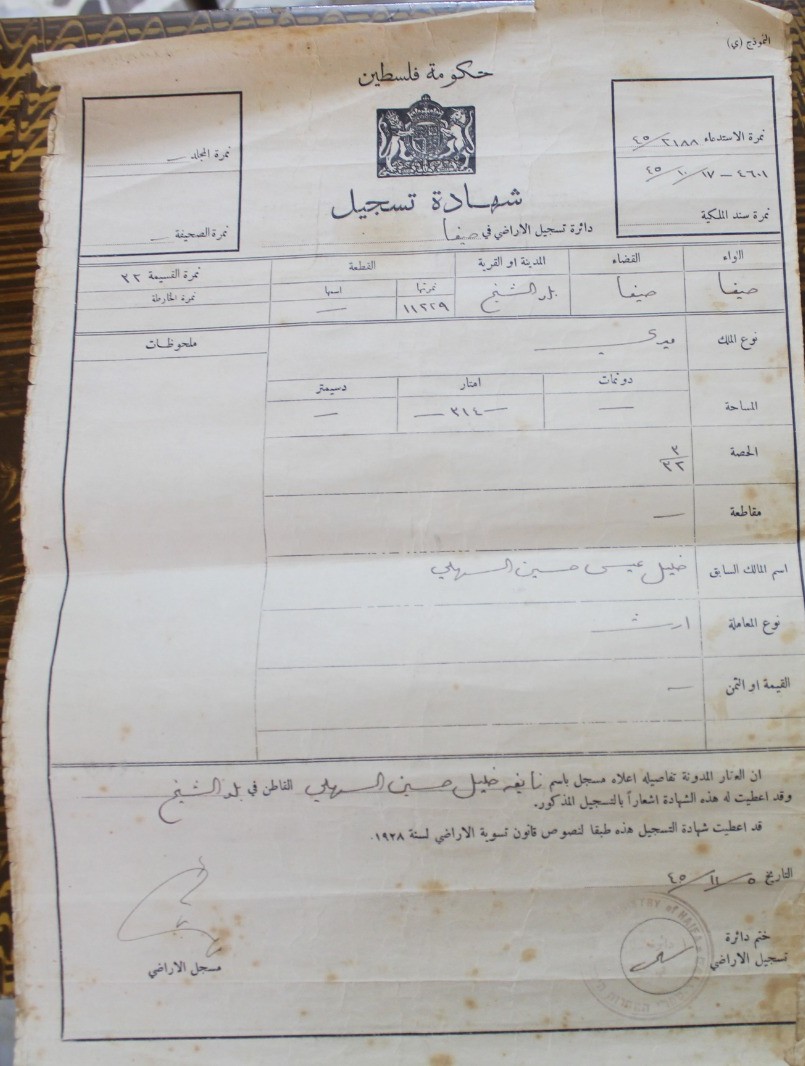 النموذج (ي)
حكومة فلسطين
نمرة الاستدعاء ٢١٨٨/٤٥
٤٦٠١ – ١٧/١٠/٤٥
نمرة سند الملكية
نمرة المجلد —
نمرة الصحيفة —
شهادة تسجيل
دائرة تسجيل الاراضي في حيفا
اللواء القضاء المدينة او القرية القطعة نمرة القسيمة ٣٢
نمرتها اسمها نمرة الخارطة
حيفا حيفا بلد الشيخ ١١٢٢٩ —
نوع الملك ميري ملحوظات
دونمات امتار دسيمتر
المساحة — —٣١٤— —
الحصة ٣/٣٢
مقاطعة —
اسم المالك السابق خليل عيسى حسين السهلي
نوع المعاملة ارث
القيمة او الثمن —
ان العقار المدونة تفاصيله اعلاه مسجل باسم نايفه خليل حسين السهلي القاطن في بلد الشيخ
وقد اعطيت له هذه الشهادة اشعاراً بالتسجيل المذكور.
قد اعطيت شهادة التسجيل هذه طبقا لنصوص قانون تسوية الاراضي لسنة ١٩٢٨.
التاريخ ٥/١١/٤٥
ختم دائرة
تسجيل الاراضي
مسجل الاراضي